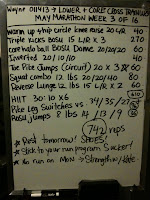 Wayne 01.14.13 → LOWER + CORE CROSS TRAINING
MAY MARATHON WEEK 3 OF 16
Warm up ship circle knee raise 20 L/R 40
Triple Kicks Bosu 15 L/R x 3 270
Bosu Dome 20/20/20 60
Inverted 20/10/10 40
Toe Pike Jumps (Circuit) 20 x 3 60
Squad combo 12 lbs 20/20/40 80
Reverse Lunge 12 lbs 15 L/R x 2 60
HIIT 30:10 x 6
Pike Leg Switches vs. 34/35/27
Bosu Jumps 8 lbs 14/13/9
742 reps
* Rest tomorrow!
* Stick to your run program Sucker!
* No run on Mon → Strength w/